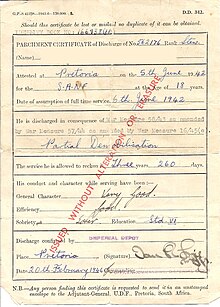 D.D. 342.
Should this certificate be lost or mislaid no duplicate of it can be obtained.
PARCHMENT CERTIFICATE of Discharge of No.
Attested at Pretoria on the 5th June 1942
for the at the age of 18 years.
Date of assumption of full time service 5th June 1942
He is discharged in consequence of War Measure as amended
by War Measure as amended by War Measure
Partial Demobilisation
The service he is allowed to reckon is Three years 260 days.
His conduct and character while serving have been:—
General Character Very Good.
Efficiency Good
Sobriety Education Std. VI
ISSUED WITHOUT ALTERATION OR ERASURE
Discharge confirmed by DISPERSAL DEPOT
Place Pretoria (Signature)
Date 20th February 1946
N.B.—Any person finding this certificate is requested to send it in an unstamped
envelope to the Adjutant-General, U.D.F., Pretoria, South Africa.